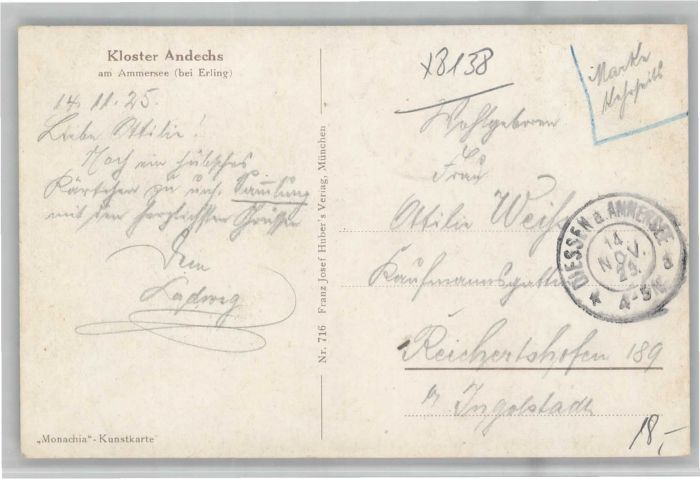 Kloster Andechs
am Ammersee (bei Erling)
14. 11. 25.
Liebe Ottilie!
Noch ein hübsches
Kärtchen zu uns. Sammlung
mit den herzlichsten Grüßen
Dein
Ludwig
„Monachia"-Kunstkarte
Nr. 716 Franz Josef Huber's Verlag, München
x8138
Marke
Kehrseits
Wohlgeboren
Frau
Ottilie
Kaufmannsgattin
Reichertshofen 189
b/ Ingolstadt
DIESSEN a. AMMERSEE
14.
NOV.
25.
18,-